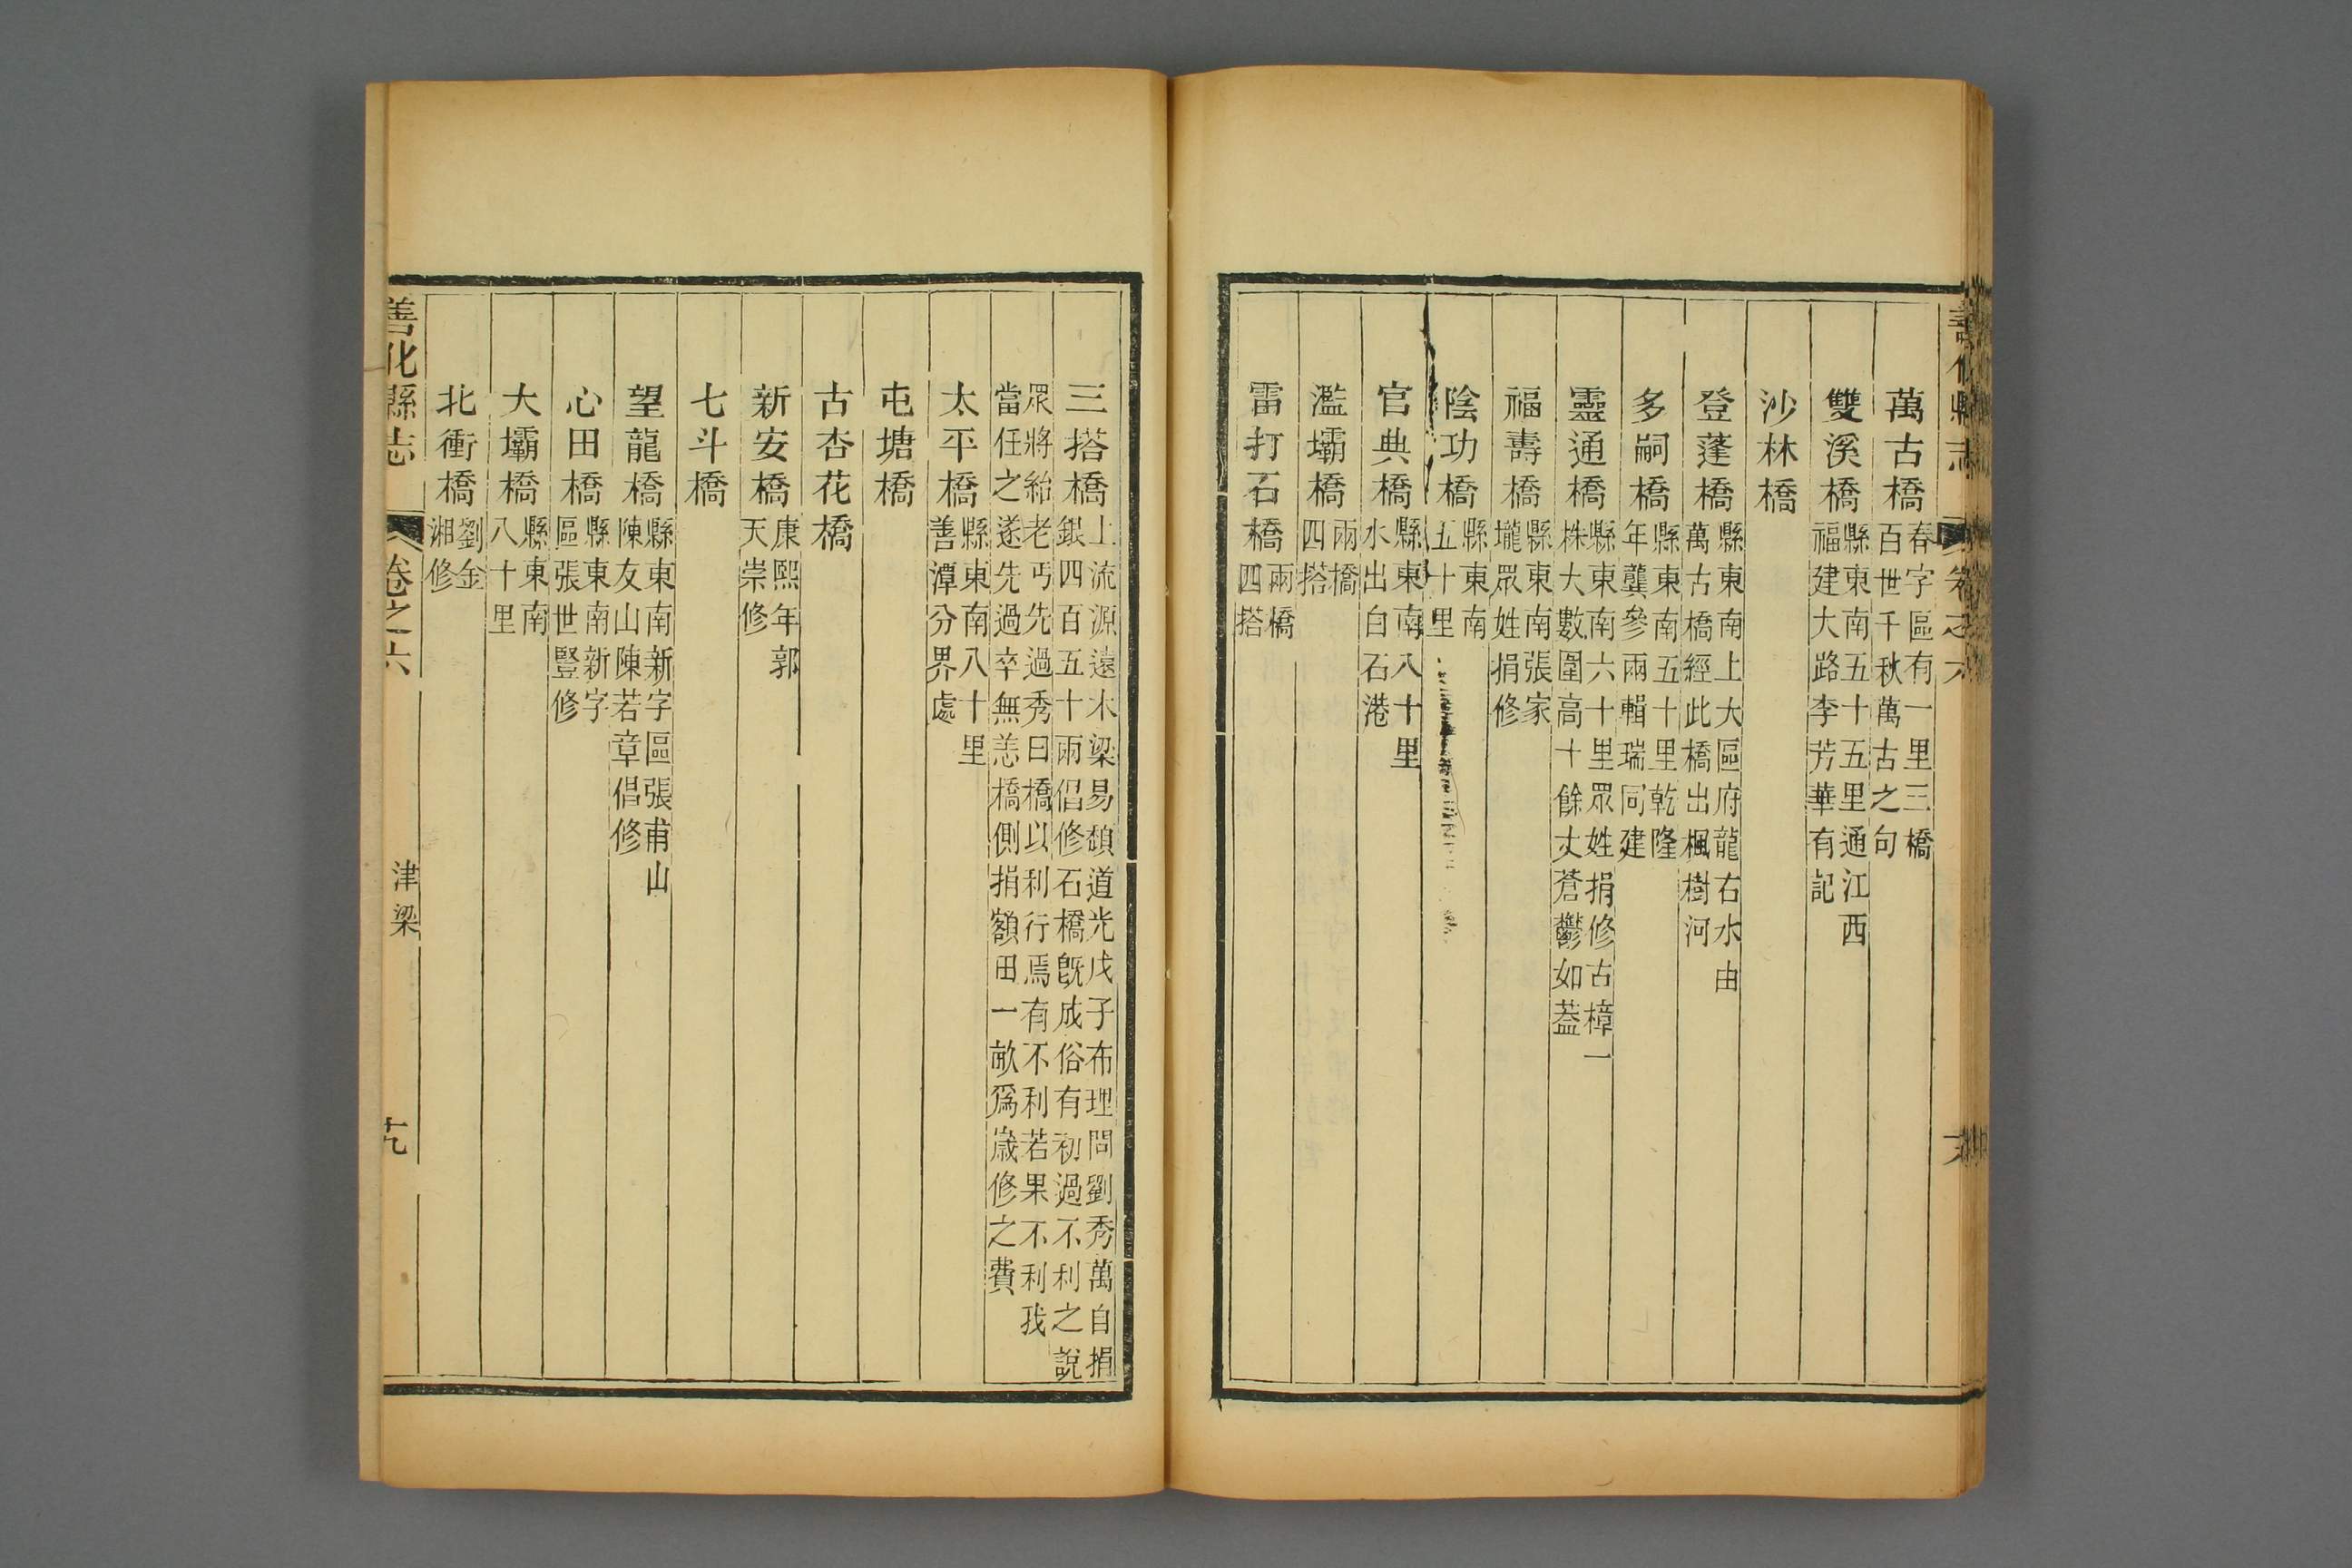 善化縣志 卷之六
萬古橋 春字區有一里三橋百世千秋萬古之句
雙溪橋 縣東南五十五里通江西福建大路李芳華有記
沙林橋
登蓬橋 縣東南上大區府龍右水由萬古橋經此橋出楓樹河
多嗣橋 縣東南五十里乾隆年龔參兩輯瑞同建
靈通橋 縣東南六十里眾姓捐修古樟一株大數圍高十餘丈蒼鬱如蓋
福壽橋 縣東南張家壠眾姓捐修
陰功橋 縣東南五十里
官典橋 縣東南八十里水出自石港
濫壩橋 兩橋四搭
雷打石橋 兩橋四搭
三搭橋 上流源遠木梁易頹道光戊子布理問劉秀萬自捐銀四百五十兩倡修石橋旣成俗有初過不利之說
眾將紿老丐先過秀曰橋以利行焉有不利若果不利我當任之遂先過卒無恙橋側捐額田一畝爲歲修之費
太平橋 縣東南八十里善潭分界處
屯塘橋
古杏花橋
新安橋 康熙年郭天崇修
七斗橋
望龍橋 縣東南新字區張甫山陳友山陳若章倡修
心田橋 縣東南新字區張世豎修
大壩橋 縣東南八十里
北衝橋 劉金湘修
善化縣志 卷之六 津梁 十九